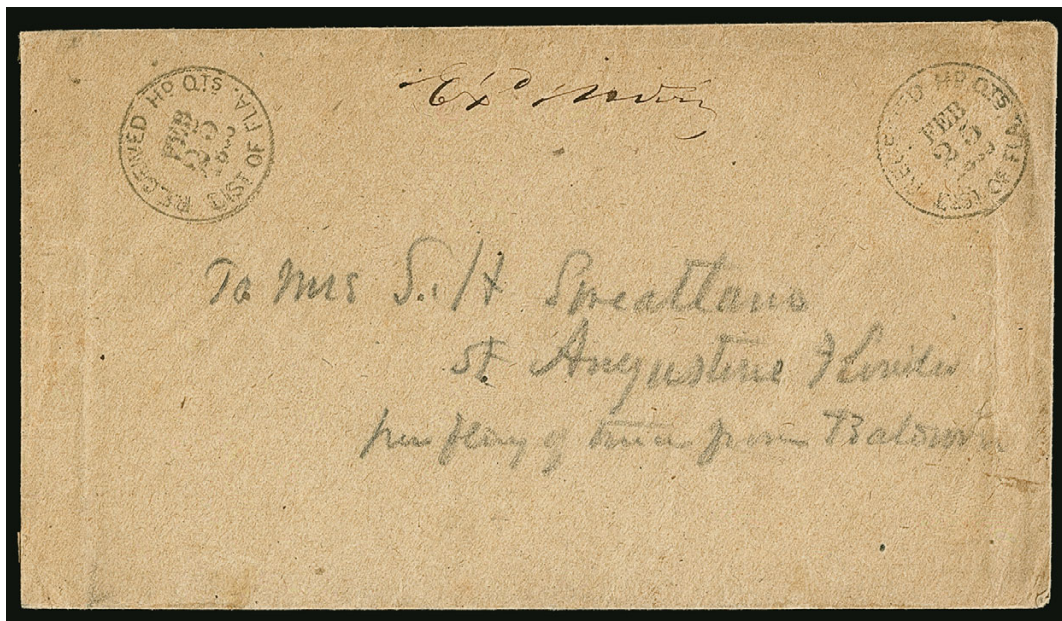 RECEIVED HD QTS. DIST OF FLA.
FEB
25
Ex'd
RECEIVED HD QTS. DIST OF FLA.
FEB
25
To Mrs S. H
St Augustine Florida
per flag of truce from Baldwin